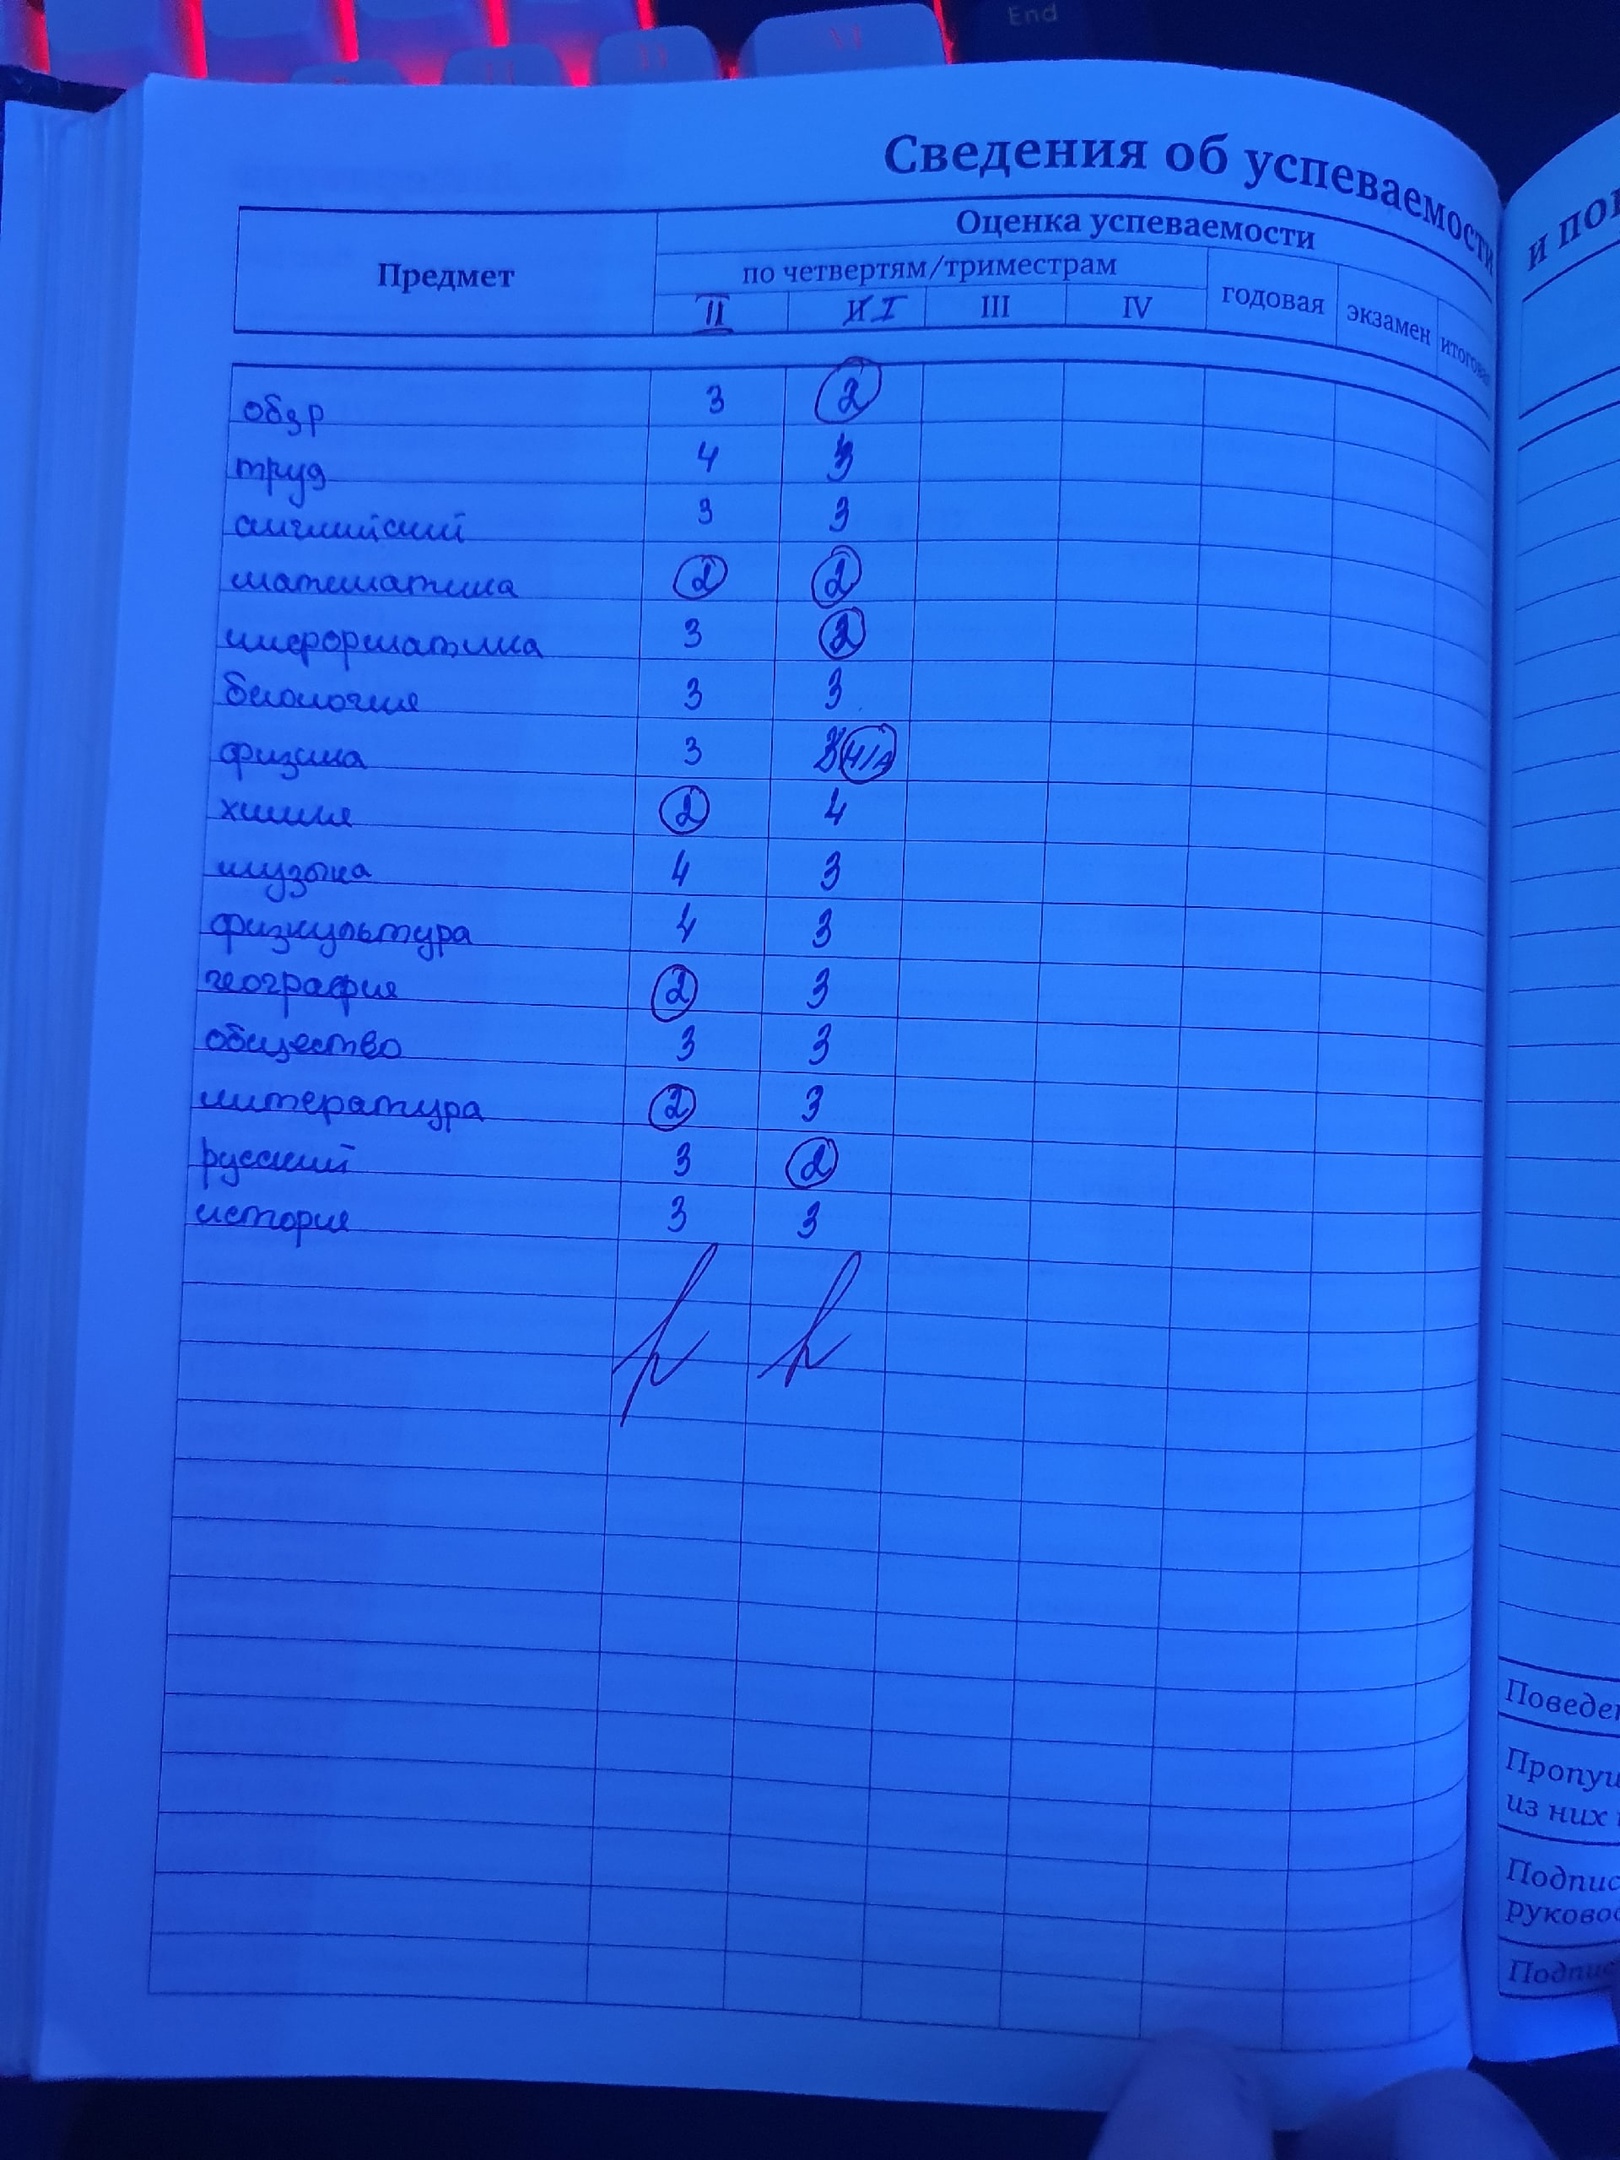 End
Сведения об успеваемости
и по
Оценка успеваемости
Предмет
по четвертям/триместрам
годовая экзамен итоговая
II III IV
обзр 3 2
труд 4 3
английский 3 3
математика 2 2
информатика 3 2
биология 3 3
физика 3 н/а
химия 2 4
музыка 4 3
физкультура 4 3
география 2 3
общество 3 3
литература 2 3
русский 3 2
история 3 3
Поведен
Пропущ
из них
Подпис
руковод
Подпис